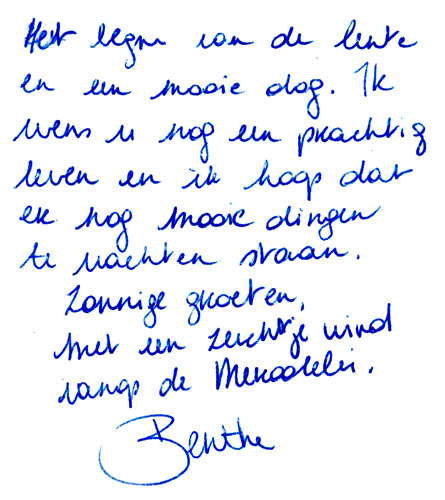 Het begin van de lente
en een mooie dag. Ik
wens u nog een prachtig
leven en ik hoop dat
er nog mooie dingen
te wachten staan.
Zonnige groeten,
met een zuchtje wind
langs de
Benthe